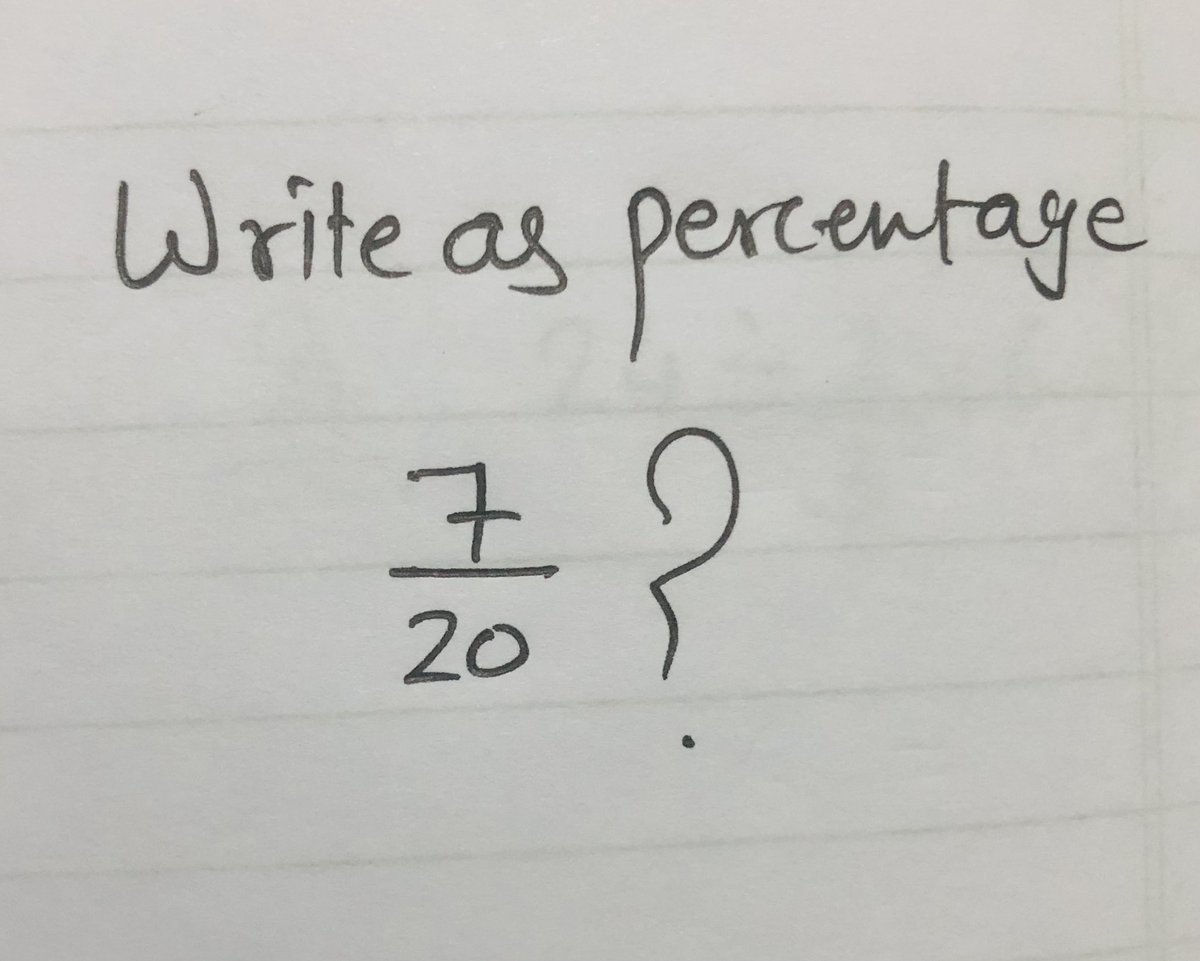 Write as percentage
7
20 ?